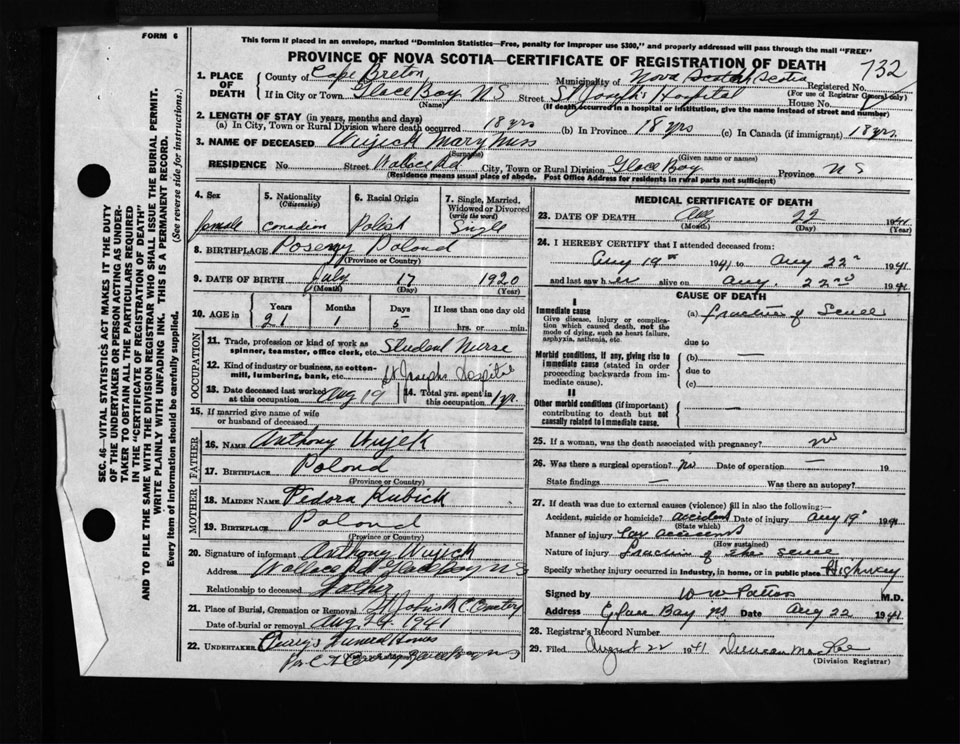 FORM 6
This form if placed in an envelope, marked "Dominion Statistics—Free, penalty for improper use $300," and properly addressed will pass through the mail "FREE"
PROVINCE OF NOVA SCOTIA—CERTIFICATE OF REGISTRATION OF DEATH
732
1. PLACE OF DEATH
County of Cape Breton Municipality of Nova Scotia Registered No.
(For use of Registrar General only)
If in City or Town Glace Bay, N S Street St Joseph's Hospital House No.
(Name) (If death occurred in a hospital or institution, give the name instead of street and number)
2. LENGTH OF STAY (in years, months and days)
(a) In City, Town or Rural Division where death occurred 18 yrs (b) In Province 18 yrs (c) In Canada (if immigrant) 18 yrs
3. NAME OF DECEASED Wujeck Mary Miss
(Surname) (Given name or names)
RESIDENCE No. Street Wallace Rd City, Town or Rural Division Glace Bay Province N S
(Residence means usual place of abode. Post Office Address for residents in rural parts not sufficient)
4. Sex female
5. Nationality (Citizenship) Canadian
6. Racial Origin Polish
7. Single, Married, Widowed or Divorced (write the word) Single
8. BIRTHPLACE Poland
(Province or Country)
9. DATE OF BIRTH July 17 1920
(Month) (Day) (Year)
10. AGE in Years 21 Months 1 Days 5 If less than one day old hrs. or min.
OCCUPATION
11. Trade, profession or kind of work as spinner, teamster, office clerk, etc. Student Nurse
12. Kind of industry or business, as cotton-mill, lumbering, bank, etc. St Josephs Hospital
13. Date deceased last worked at this occupation Aug 19
14. Total yrs. spent in this occupation 1 yr.
15. If married give name of wife or husband of deceased
FATHER
16. NAME Anthony Wujeck
17. BIRTHPLACE Poland
(Province or Country)
MOTHER
18. MAIDEN NAME Fedora Kubick
19. BIRTHPLACE Poland
(Province or Country)
20. Signature of informant Anthony Wujeck
Address Wallace Rd Glace Bay N S
Relationship to deceased Father
21. Place of Burial, Cremation or Removal St Johns R C Cemetery
Date of burial or removal Aug. 24 1941
22. UNDERTAKER Funeral Homes
Per C. Glace Bay N S
MEDICAL CERTIFICATE OF DEATH
23. DATE OF DEATH Aug 22 1941
(Month) (Day) (Year)
24. I HEREBY CERTIFY that I attended deceased from:
Aug 19th 1941 to Aug 22nd 1941
and last saw her alive on Aug. 22nd 1941
CAUSE OF DEATH
I
Immediate cause
Give disease, injury or complication which caused death, not the mode of dying, such as heart failure, asphyxia, asthenia, etc.
(a) fracture of Scull
due to
Morbid conditions, if any, giving rise to immediate cause (stated in order proceeding backwards from immediate cause).
(b) —
due to
(c)
II
Other morbid conditions (if important) contributing to death but not causally related to immediate cause.
—
25. If a woman, was the death associated with pregnancy? no
26. Was there a surgical operation? no Date of operation — 19
State findings — Was there an autopsy?
27. If death was due to external causes (violence) fill in also the following:
Accident, suicide or homicide? accident Date of injury Aug 19th 1941
(State which)
Manner of injury Car accident
(How sustained)
Nature of injury fracture of the Scull
Specify whether injury occurred in industry, in home, or in public place Highway
Signed by W W Patton M.D.
Address Glace Bay NS Date Aug 22 1941
28. Registrar's Record Number
29. Filed August 22 1941 Duncan
(Division Registrar)
SEC. 46—VITAL STATISTICS ACT MAKES IT THE DUTY
OF THE UNDERTAKER OR PERSON ACTING AS UNDERTAKER
TO OBTAIN ALL THE PARTICULARS REQUIRED
IN THE "CERTIFICATE OF REGISTRATION OF DEATH"
AND TO FILE THE SAME WITH THE DIVISION REGISTRAR WHO SHALL ISSUE THE BURIAL PERMIT.
WRITE PLAINLY WITH UNFADING INK. THIS IS A PERMANENT RECORD.
Every item of information should be carefully supplied. (See reverse side for instructions.)